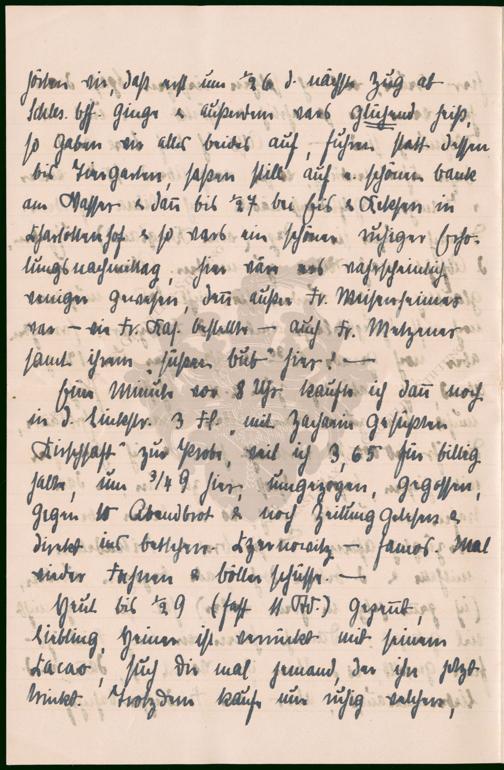 hörten wir, daß erst um ½ 6 d. nächste Zug ab
Schles. bff. ginge & außerdem wars glühend heiß,
so gaben wir alles beides auf, fuhren statt dessen
bis Tiergarten, saßen still auf e. schönen bank
am Wasser & dan̄ bis ½ 7 bei Eis & Keksen in
Charlottenhof & so wars ein schöner ruhiger Erho-
lungsnachmittag, hier wär es wahrscheinlich
weniger gewesen, den̄ außer Fr. Meisenheimer
war — wie Fr. Kas. bestellte — auch Fr. Metzener
samt ihrem "süßen bub" hier! —
Eine Minute vor 8 Uhr kaufte ich dan̄ noch
in d. Linkstr. 3 Fl. mit Zacharin gesüßten
"Kirschsaft" zur Probe, weil ich 3,65 für billig
halte, um ¾ 9 hier, umgezogen, gegossen,
gegen 10 Abendbrot & noch Zeitung gelesen &
direkt ins bettchen. Czernowitz — famos. Mal
wieder Fahnen & böllerschüsse. —
Heut bis ½ 9 (fast 11 Std.) gepennt,
Liebling, Heiner ist verrückt mit seinem
Kacao, such Dir mal jemand, der ihn jetzt
trinkt. Trotzdem kaufe nur ruhig welchen,